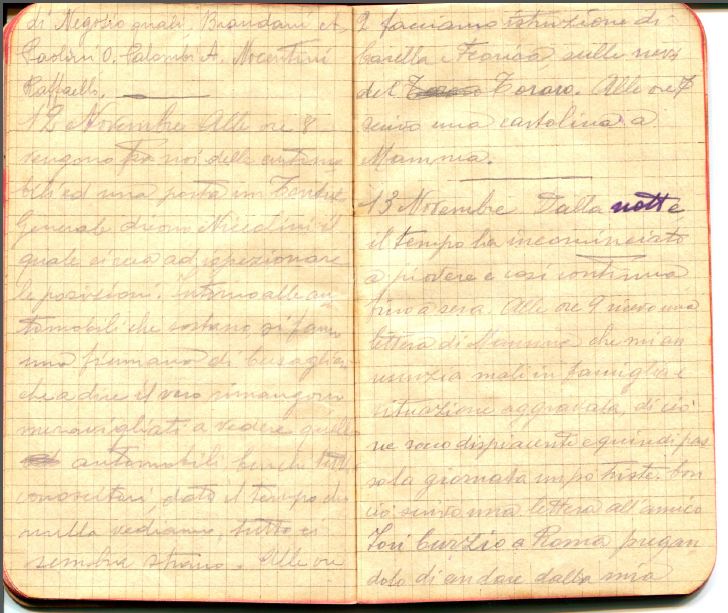 di Negozio quali, Brandani A.
Paolini O. Colombi A. Nocentini
Raffaello.
12 Novembre Alle ore 8
vengono fra noi delle automo
bili ed una porta un Tenente
Generale dicono Niccolini il
quale ci va ad ispezionare
le posizioni. Intorno alle au
tomobili che sostano, si forma
una fiumana di bersaglieri
che a dire il vero rimangono
meravigliati a vedere quelle
automobili benchè tutti
conoscitori, dato il tempo che
nulla vediamo, tutto ci
sembra strano. Alle ore
2 facciamo istruzione di
Barella e Feriti sulle nevi
del Toraro. Alle ore 7
scrivo una cartolina a
Mamma.
13 Novembre Dalla notte
il tempo ha incominciato
a piovere e così continua
fino a sera. Alle ore 9 ricevo una
lettera di Mamma che mi an
nunzia mali in famiglia e
situazione aggravata, di ciò
ne sono dispiacente e quindi pas
so la giornata un pò triste. Con
ciò scrivo una lettera all'amico
Tori Curzio a Roma pregan
dolo di andare dalla mia